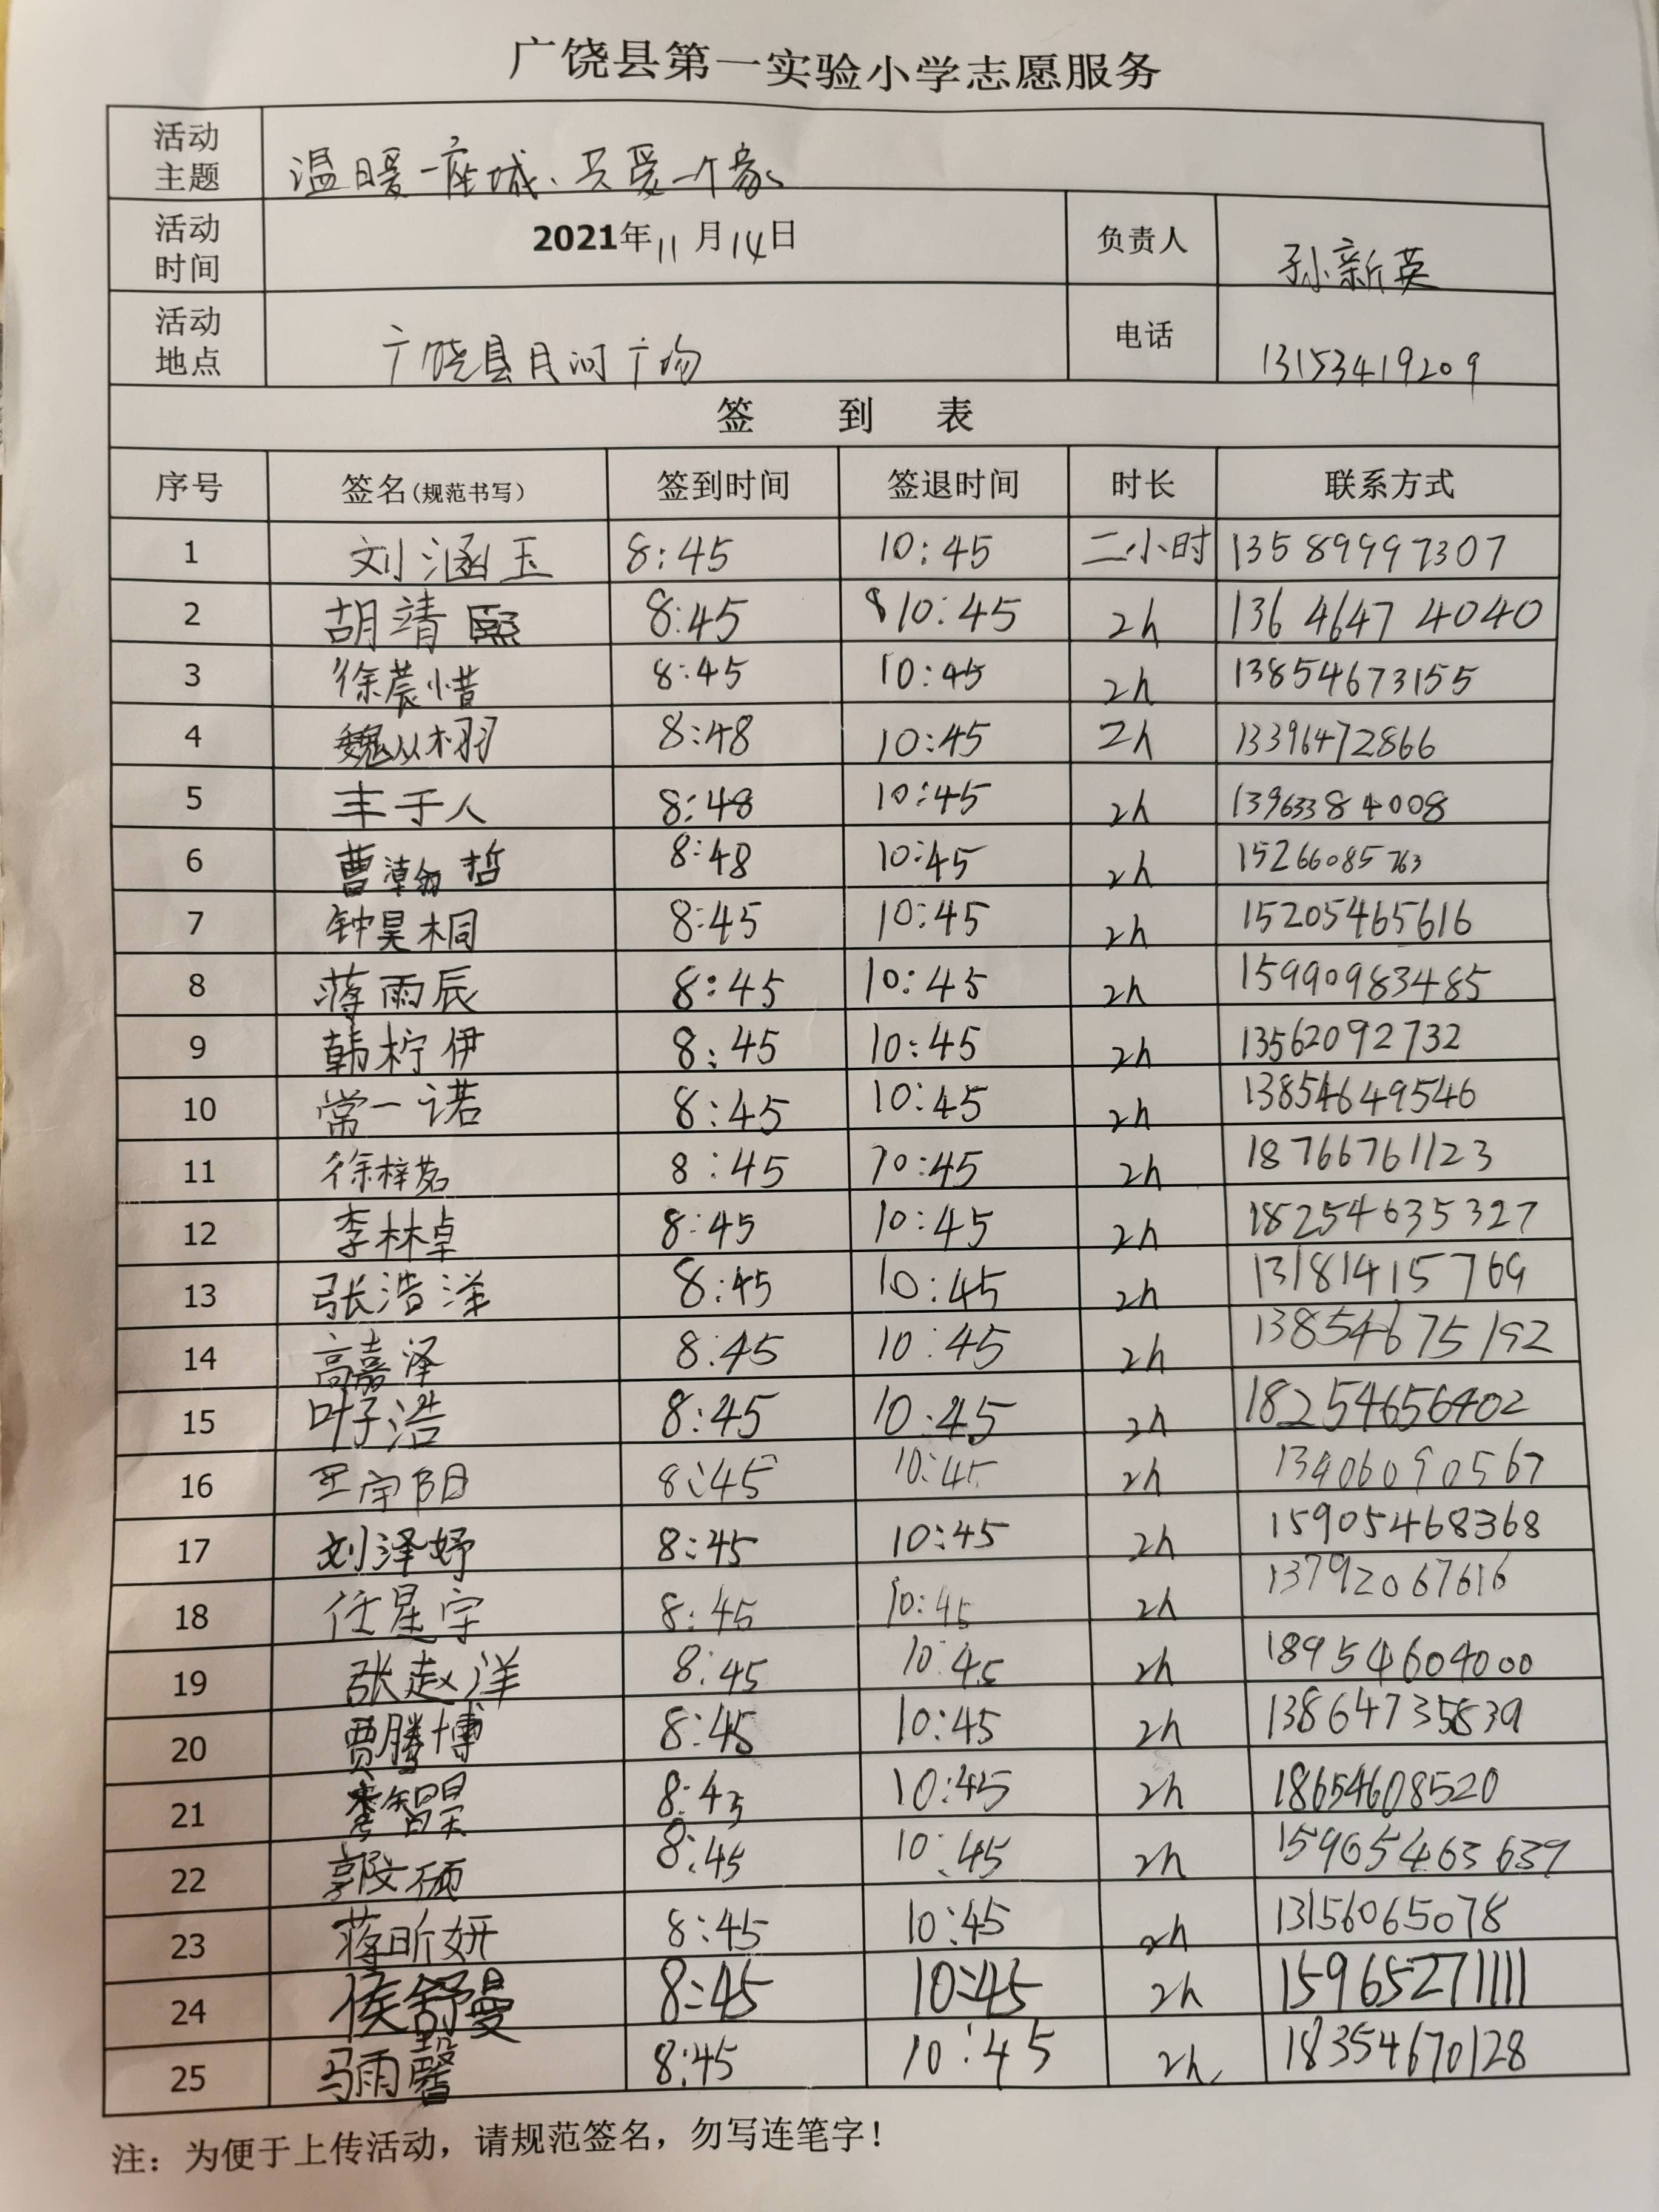 广饶县第一实验小学志愿服务
活动主题 温暖一座城、只爱一个家
活动时间 2021年11月14日 负责人 孙新英
活动地点 广饶县月河广场 电话 13153419209
签 到 表
序号 签名(规范书写) 签到时间 签退时间 时长 联系方式
1 刘涵玉 8:45 10:45 二小时 13589997307
2 胡靖熙 8:45 10:45 2h 136 4647 4040
3 徐晨惜 8:45 10:45 2h 13854673155
4 魏从栩 8:48 10:45 2h 13396472866
5 丰于人 8:48 10:45 2h 13963384008
6 曹瀚哲 8:48 10:45 2h 15266085763
7 钟昊桐 8:45 10:45 2h 15205465616
8 蒋雨辰 8:45 10:45 2h 15990983485
9 韩柠伊 8:45 10:45 2h 13562092732
10 常一诺 8:45 10:45 2h 13854649546
11 徐梓茗 8:45 10:45 2h 18766761123
12 李林卓 8:45 10:45 2h 18254635327
13 张浩洋 8:45 10:45 2h 13181415769
14 高嘉泽 8:45 10:45 2h 13854675192
15 叶子浩 8:45 10:45 2h 18254656402
16 王宇阳 8:45 10:45 2h 13406090567
17 刘泽妤 8:45 10:45 2h 15905468368
18 任星宇 8:45 10:45 2h 13792067616
19 张赵洋 8:45 10:45 2h 18954604000
20 贾腾博 8:45 10:45 2h 13864735839
21 智昊 8:45 10:45 2h 18654608520
22 郭文硕 8:45 10:45 2h 15965463639
23 蒋昕妍 8:45 10:45 2h 13156065078
24 侯舒曼 8:45 10:45 2h 15965271111
25 马雨馨 8:45 10:45 2h 18354670128
注：为便于上传活动，请规范签名，勿写连笔字！